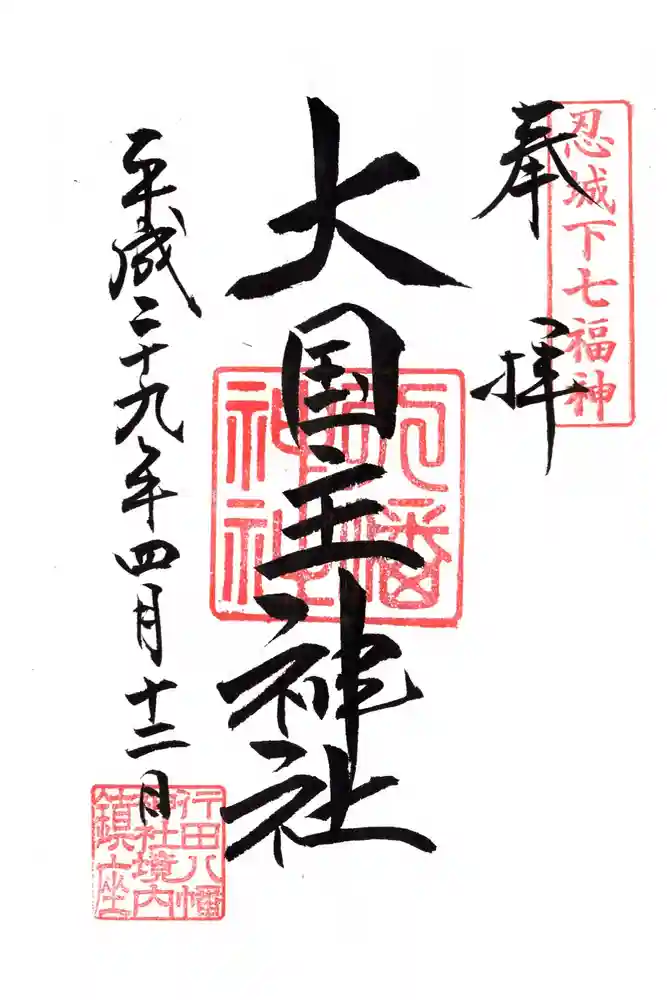 忍城下七福神
奉拝
大国主神社
八幡神社
平成二十九年四月十二日
行田八幡
神社境内
鎮座